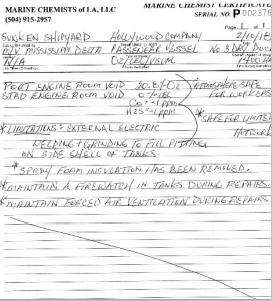 MARINE CHEMISTS of LA, LLC
MARINE CHEMIST CERTIFICATE
(504) 915-2957
SERIAL NO. P 002376
Page 1 of 1
SUNKEN SHIPYARD HOLLYWOOD COMPANY 2/10/18
M/V MISSISSIPPI DELTA PASSENGER VESSEL NO. 3 DRY DOCK
N/A O2/LEL/VISUAL 1400 HR
PORT ENGINE ROOM VOID 20.8% O2 ATMOSPHERE SAFE
STBD ENGINE ROOM VOID 0% LEL FOR WORKERS
CO - <1 ppm
H2S - <1 ppm *SAFE FOR LIMITED
HOTWORK
*LIMITATIONS: EXTERNAL ELECTRIC
WELDING & GRINDING TO FILL PITTING
ON SIDE SHELL OF TANKS.
*SPRAY FOAM INSULATION HAS BEEN REMOVED.
*MAINTAIN A FIREWATCH IN TANKS DURING REPAIRS.
*MAINTAIN FORCED AIR VENTILATION DURING REPAIRS.